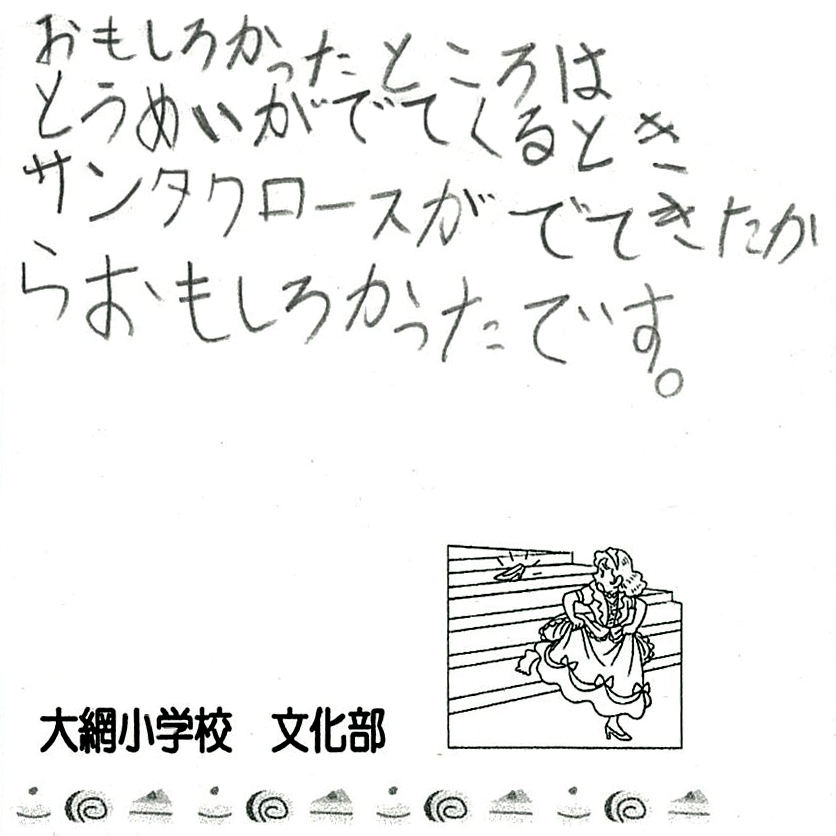 おもしろかったところは
とうめいがでてくるとき
サンタクロースがでてきたか
らおもしろかったです。
大網小学校 文化部